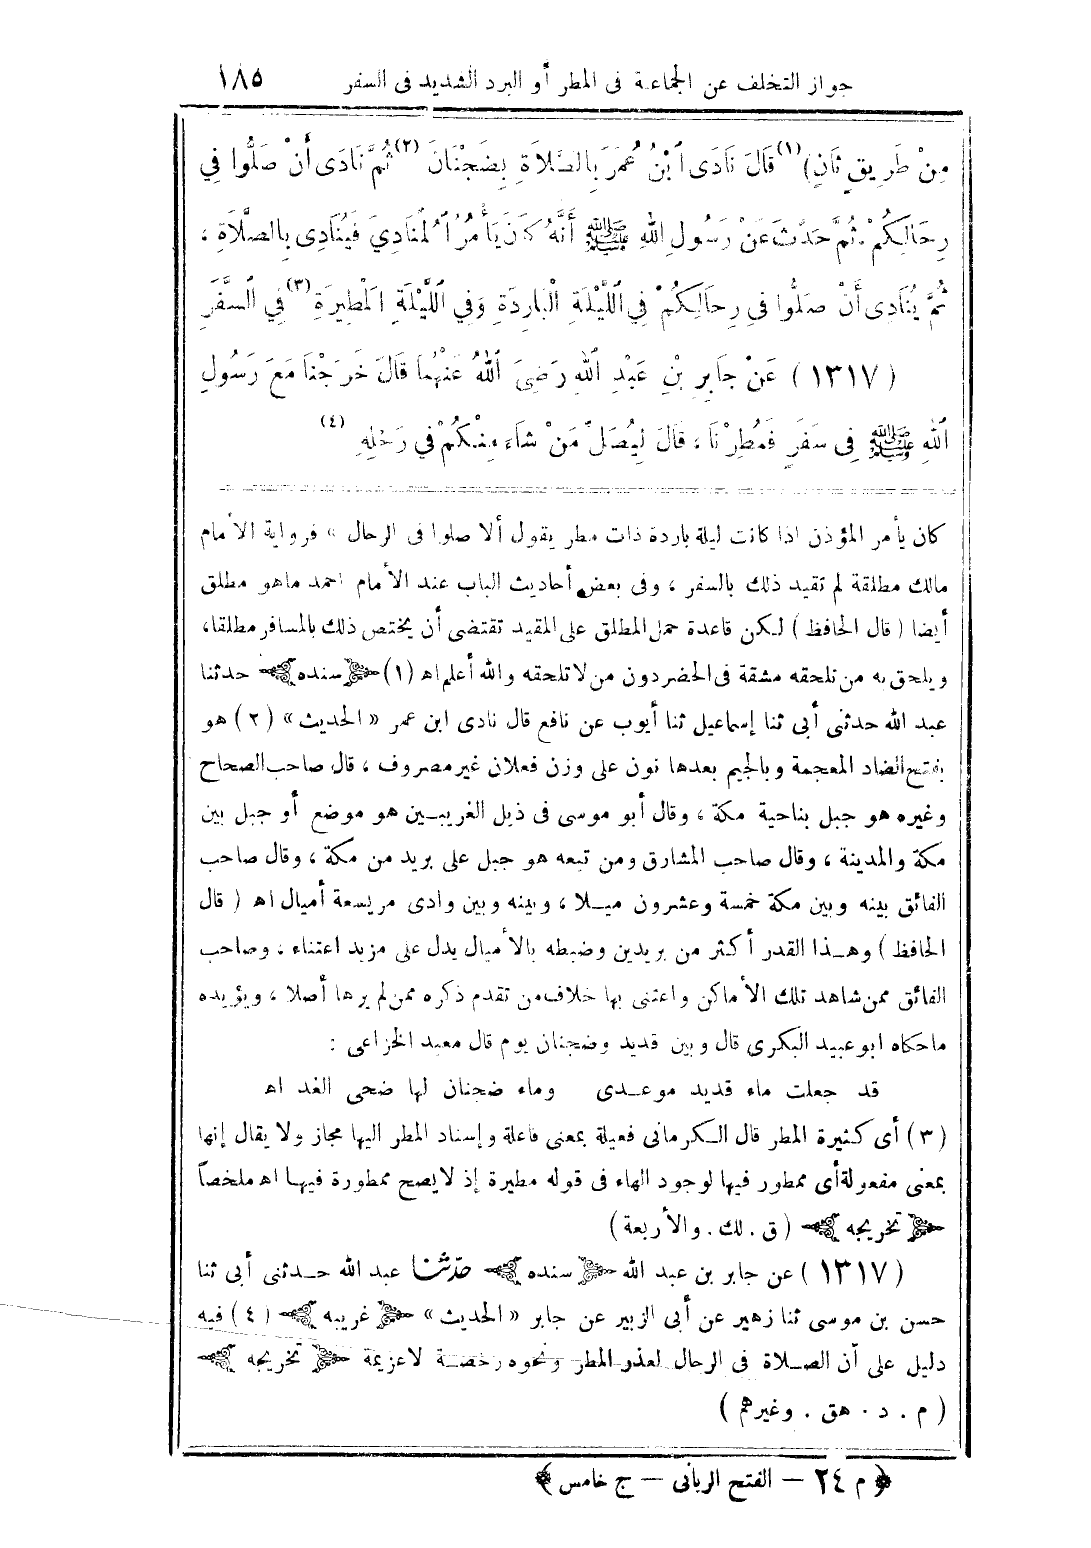 جواز التخلف عن الجماعة فى المطر أو البرد الشديد فى السفر ١٨٥
مِنْ طَرِيقٍ ثَانٍ)(١) قَالَ نَادَى ٱبْنُ عُمَرَ بِالصَّلاَةِ بِضَجْنَانَ (٢) ثُمَّ نَادَى أَنْ صَلُّوا فِي
رِحَالِكُمْ. ثُمَّ حَدَّثَ عَنْ رَسُولِ اللهِ ﷺ أَنَّهُ كَانَ يَأْمُرُ ٱلْمُنَادِيَ فَيُنَادِى بِالصَّلَاةِ ،
ثُمَّ يُنَادِى أَنْ صَلُّوا فِى رِحَالِكُمْ فِي ٱللَّيْلَةِ الْبَارِدَةِ وَفِي اللَّيْلَةِ الْمَطِيرَةِ (٣) فِي ٱلسَّفَرِ
(١٣١٧) عَنْ جَابِرِ بْنِ عَبْدِ ٱللهِ رَضِىَ ٱللهُ عَنْهُمَا قَالَ خَرَجْنَا مَعَ رَسُولِ
ٱللهِ ﷺ فِى سَفَرٍ فَمُطِرْنَا ، قَالَ لِيُصَلِّ مَنْ شَاءَ مِنْكُمْ فِي رَحْلِهِ (٤)
كان يأمر المؤذن اذا كانت ليلة باردة ذات مطر يقول ألا صلوا فى الرحال » فرواية الأمام
مالك مطلقة لم تقيد ذلك بالسفر ، وفى بعض أحاديث الباب عند الأمام احمد ماهو مطلق
أيضا ( قال الحافظ ) لكن قاعدة حمل المطلق على المقيد تقتضى أن يختص ذلك بالمسافر مطلقا،
ويلحق به من تلحقه مشقة فى الحضر دون من لا تلحقه والله أعلم اه (١) ﴿ سنده ﴾ حدثنا
عبد الله حدثنى أبى ثنا إسماعيل ثنا أيوب عن نافع قال نادى ابن عمر «الحديث» (٢) هو
بفتح الضاد المعجمة وبالجيم بعدها نون على وزن فعلان غير مصروف ، قال صاحب الصحاح
وغيره هو جبل بناحية مكة ، وقال أبو موسى فى ذيل الغريبين هو موضع أو جبل بين
مكة والمدينة ، وقال صاحب المشارق ومن تبعه هو جبل على بريد من مكة ، وقال صاحب
الفائق بينه وبين مكة خمسة وعشرون ميلا ، وبينه وبين وادى مريسعة أميال اه ( قال
الحافظ ) وهذا القدر أكثر من بريدين وضبطه بالأميال يدل على مزيد اعتناء ، وصاحب
الفائق ممن شاهد تلك الأماكن واعتنى بها خلاف من تقدم ذكره ممن لم يرها أصلا ، ويؤيده
ماحكاه ابو عبيد البكرى قال وبين قديد وضجنان يوم قال معبد الخزاعى :
قد جعلت ماء قديد موعدى وماء ضجنان لها ضحى الغد اه
(٣) أى كثيرة المطر قال الكرمانى فعيلة بمعنى فاعلة وإسناد المطر اليها مجاز ولا يقال إنها
بمعنى مفعولة أى ممطور فيها لوجود الهاء فى قوله مطيرة إذ لايصح ممطورة فيها اه ملخصاً
﴿ تخريجه ﴾ ( ق . لك . والأربعة )
(١٣١٧) عن جابر بن عبد الله ﴿ سنده ﴾ حدّثنا عبد الله حدثنى أبى ثنا
حسن بن موسى ثنا زهير عن أبى الزبير عن جابر «الحديث» ﴿ غريبه ﴾ (٤) فيه
دليل على أن الصلاة فى الرحال لعذر المطر ونحوه رخصة لاعزيمة ﴿ تخريجه ﴾
( م . د . هق . وغيرهم )
﴿ م ٢٤ – الفتح الربانى – ج خامس ﴾